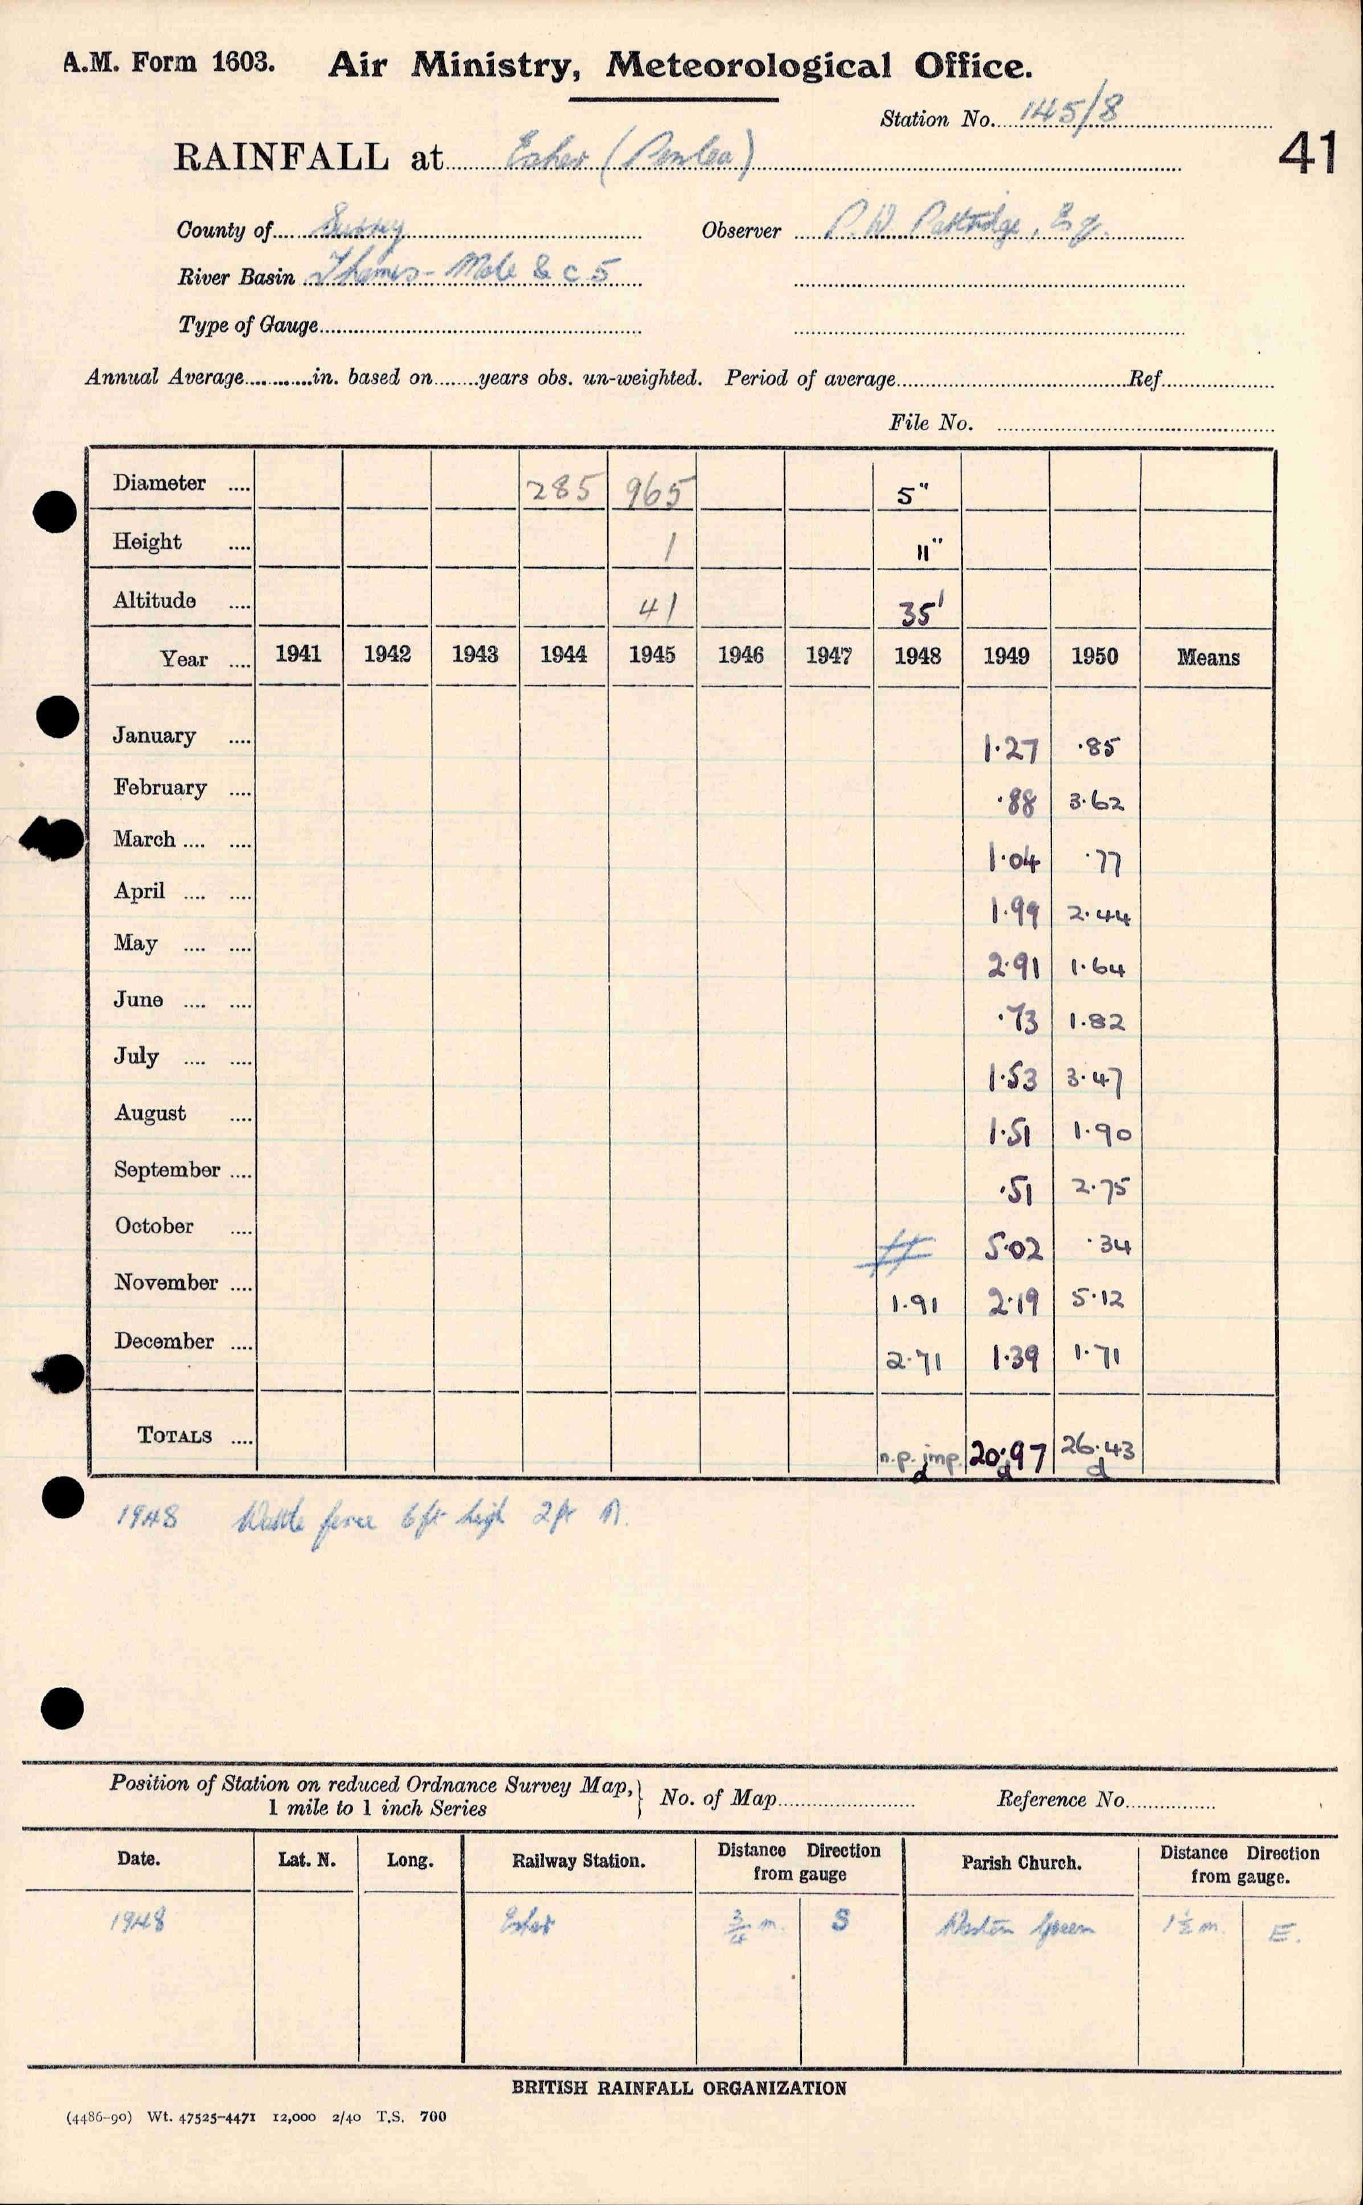 A.M. Form 1603. Air Ministry, Meteorological Office.
Station No. 145/8
41
RAINFALL at Esher (Penlea)
County of Surrey Observer P. W. Partridge, Esq.
River Basin Thames - Mole & c 5
Type of Gauge
Annual Average in. based on years obs. un-weighted. Period of average Ref.
File No.
Diameter 285 965 5"
Height 1 11"
Altitude 41 35'
Year 1941 1942 1943 1944 1945 1946 1947 1948 1949 1950 Means
January 1·27 ·85
February ·88 3·62
March 1·04 ·77
April 1·99 2·44
May 2·91 1·64
June ·73 1·82
July 1·53 3·47
August 1·51 1·90
September ·51 2·75
October 5·02 ·34
November 1·91 2·19 5·12
December 2·71 1·39 1·71
TOTALS n.p. imp. 20·97 26·43
d d d
1948 Wattle fence 6 ft high 2 ft N.
Position of Station on reduced Ordnance Survey Map, 1 mile to 1 inch Series } No. of Map Reference No.
Date. Lat. N. Long. Railway Station. Distance Direction from gauge Parish Church. Distance Direction from gauge.
1948 Esher 3/4 m. S Weston Green 1 1/2 m. E.
BRITISH RAINFALL ORGANIZATION
(4486-90) Wt. 47525-4471 12,000 2/40 T.S. 700